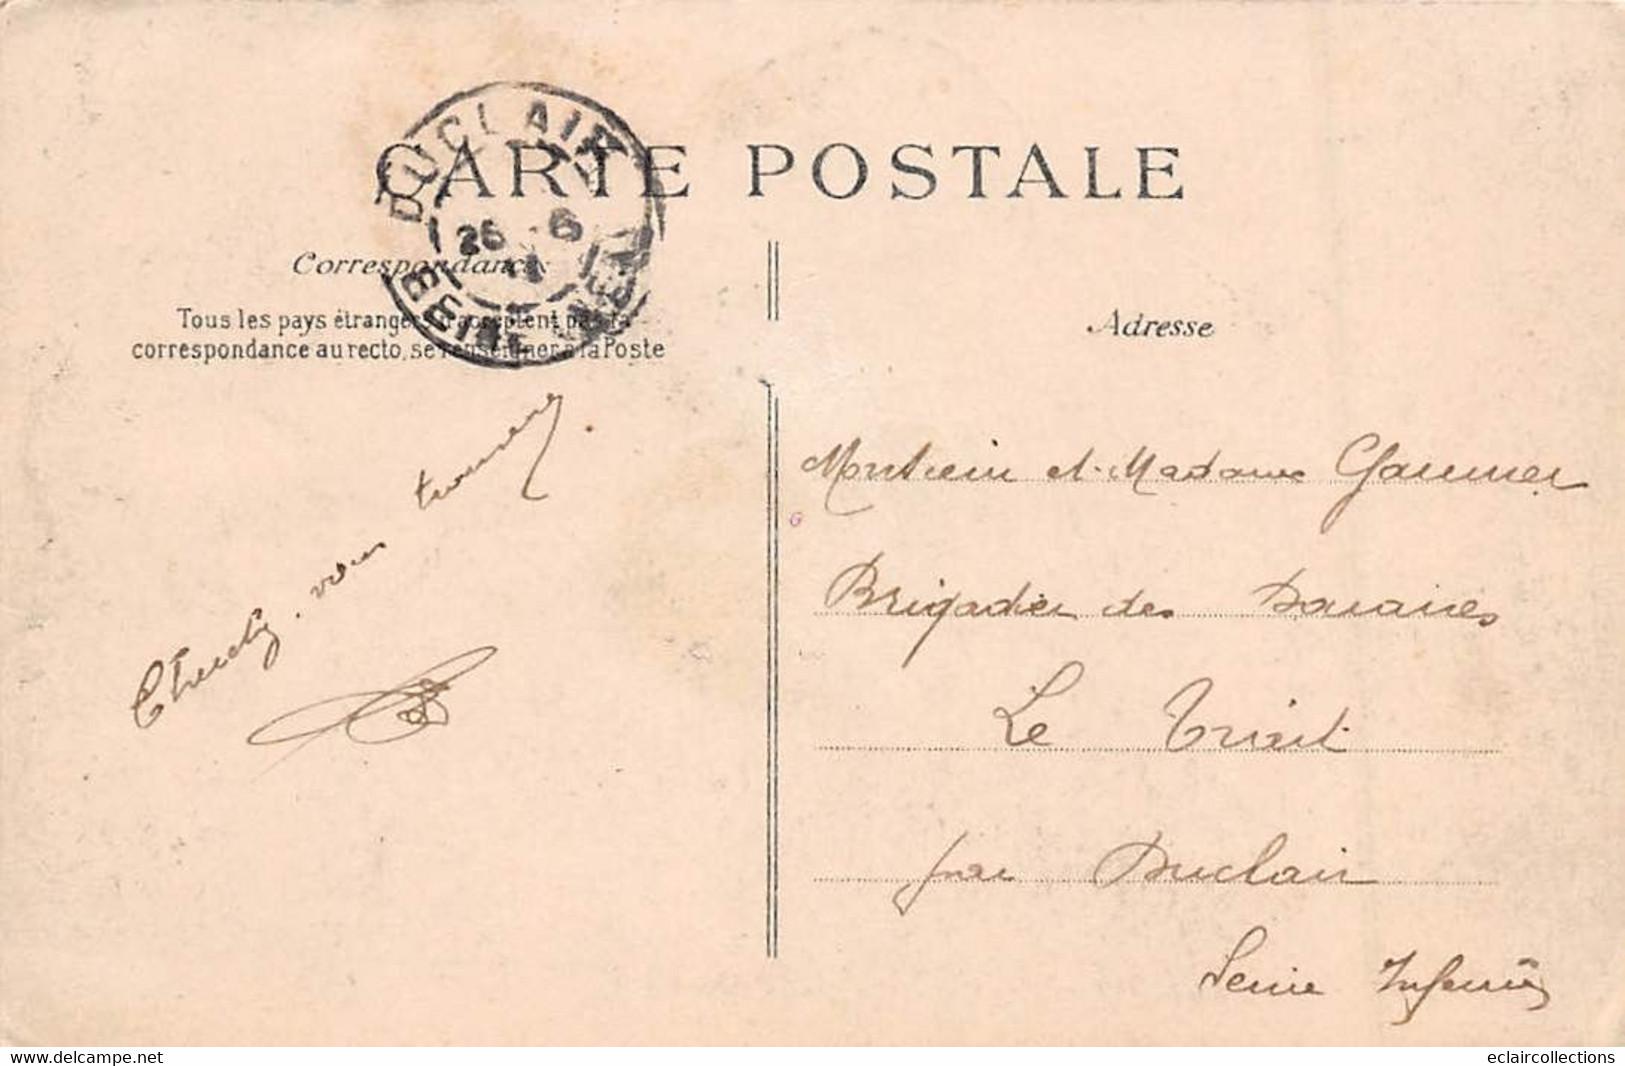 CARTE POSTALE
DUCLAIR
26 6
11
SEINE INFRE
Correspondance
Tous les pays étrangers n'acceptent pas la
correspondance au recto, se renseigner à la Poste
Adresse
Cherchez. vous trouverez.
Monsieur et Madame Gaumer
Brigadier des Douanes
Le Trait
par Duclair
Seine Inferre
delcampe.net
eclaircollections